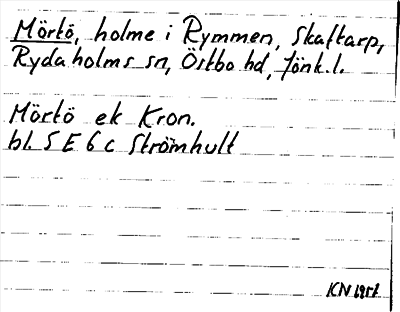 Mörtö, holme i Rymmen, Skaftarp,
Rydaholms sn, Östbo hd, Jönk. l.
Mörtö ek Kron.
bl. 5 E 6 c Strömhult
KN